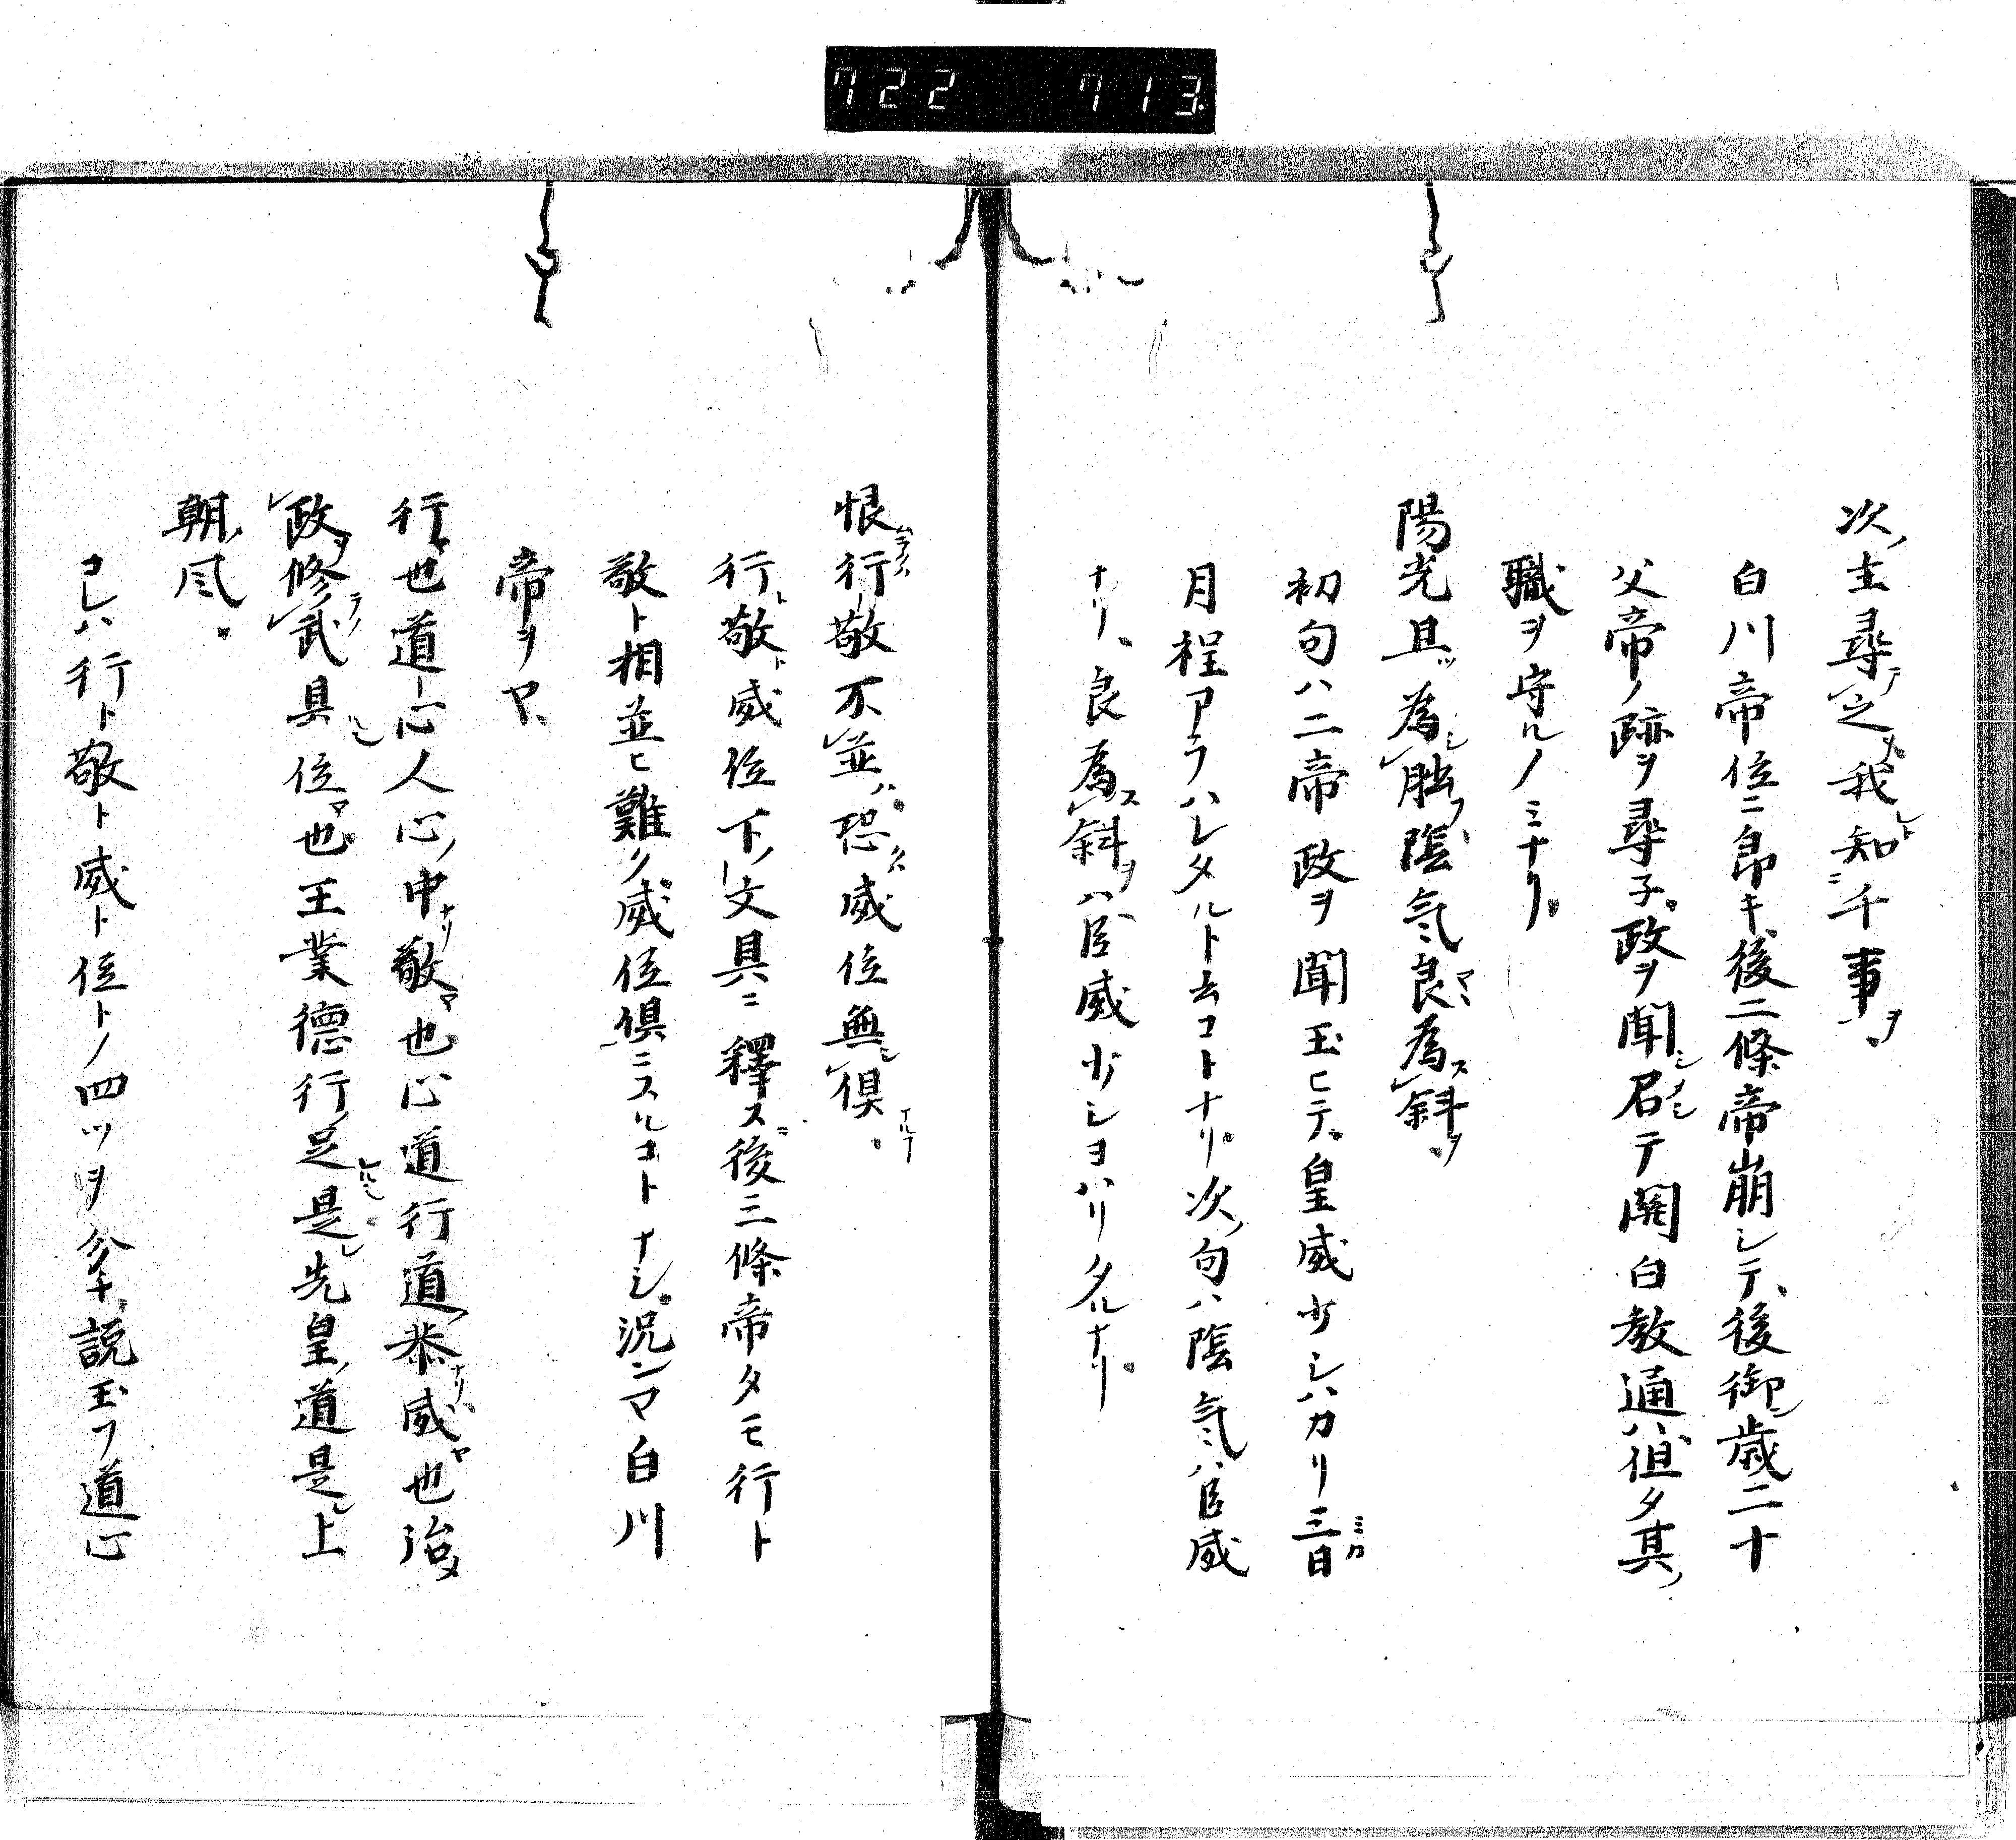 722 713
次ノ主尋テ之ヲ我レト知ニ千事ヲ
白川帝位ニ昂キ後二條帝崩シテ後御シ歳二十
父帝ノ跡ヲ尋子政ヲ聞シ召メシテ関白教通ハ但タ其ノ
職ヲ守ルノミナリ
陽光且ツ為シ朏フ陰氣良マヽ為ス斜ヲ
初句ハ二帝政ヲ聞玉ヒテ皇威少シハカリ三日ミカ
月程アラハレタルト云コトナリ次ノ句ハ陰氣ハ臣威
ナリ良為ス斜ヲハ臣威少シヨハリタルナリ
恨ラクハ行敬不並ハ恐クハ威位無シ倶ナルコト
行ト敬ト威位下ノ文具ニ釋ス後三條帝タモ行ト
敬ト相並ヒ難ク威位倶ニスルコトナシ況ンヤ白川
帝ヲヤ
行ヤ也道心人心ノ中ナリ敬ヤ也心道行道恭ナリ威ヤ也治メ
政ヲ修テノ武具シ位ヤ也王業德行足是レ先皇ノ道是レ上
朝ノ風
コレハ行ト敬ト威ト位トノ四ツヲ分チ説玉フ道心